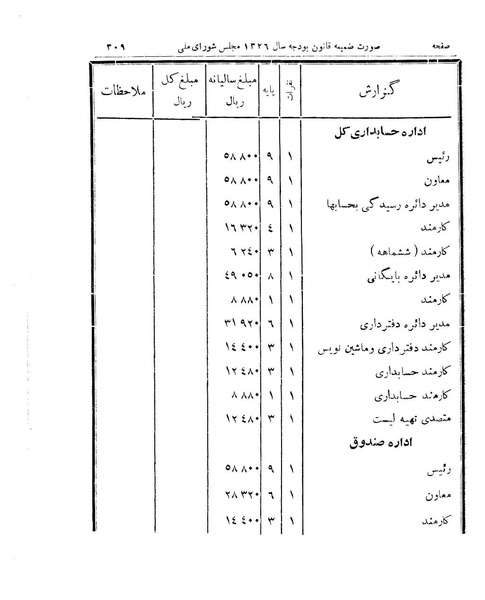 صفحه صورت ضمیمه قانون بودجه سال ۱۳۲۶ مجلس شورای ملی ۳۰۹
گزارش نفرات پایه مبلغ سالیانه ریال مبلغ کل ریال ملاحظات
اداره حسابداری کل
رئیس ۱ ۹ ۵۸ ۸۰۰
معاون ۱ ۹ ۵۸ ۸۰۰
مدیر دائره رسیدگی بحسابها ۱ ۹ ۵۸ ۸۰۰
کارمند ۱ ۴ ۱۶ ۳۲۰
کارمند ( ششماهه ) ۱ ۳ ۶ ۲۴۰
مدیر دائره بایگانی ۱ ۸ ۴۹ ۰۵۰
کارمند ۱ ۱ ۸ ۸۸۰
مدیر دائره دفترداری ۱ ۶ ۳۱ ۹۲۰
کارمند دفترداری وماشین نویس ۱ ۳ ۱۴ ۴۰۰
کارمند حسابداری ۱ ۳ ۱۲ ۴۸۰
کارمند حسابداری ۱ ۱ ۸ ۸۸۰
متصدی تهیه لیست ۱ ۳ ۱۲ ۴۸۰
اداره صندوق
رئیس ۱ ۹ ۵۸ ۸۰۰
معاون ۱ ۶ ۲۸ ۳۲۰
کارمند ۱ ۳ ۱۴ ۴۰۰